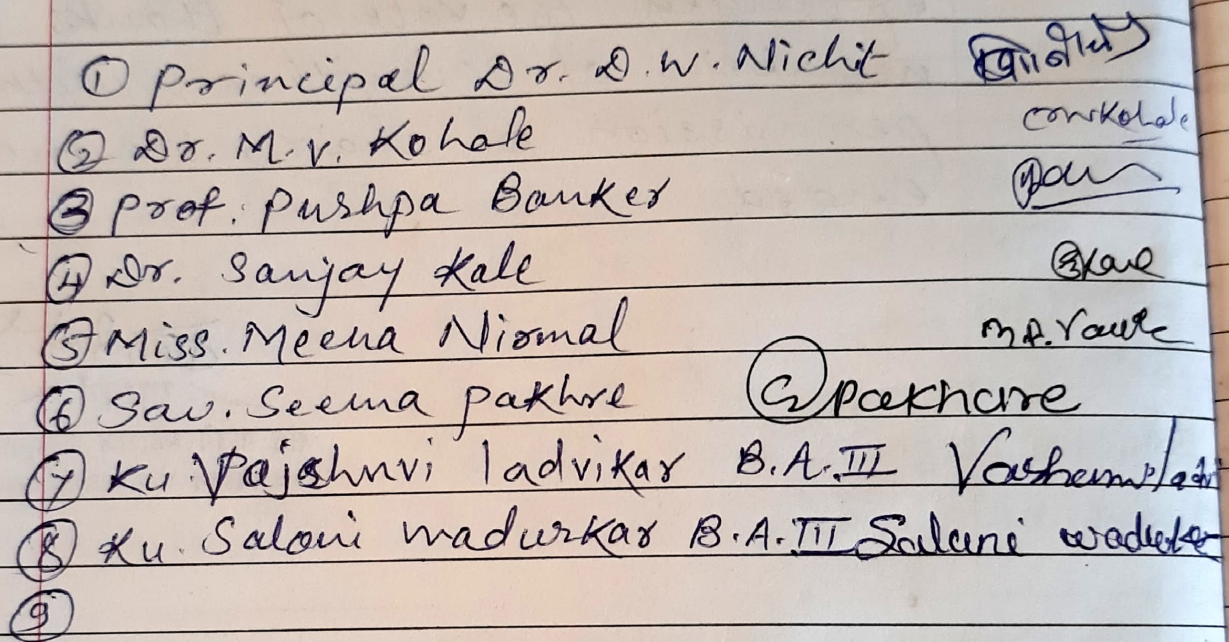 ① Principal Dr. D. W. Nichit
② Dr. M. V. Kohale
③ Prof. Pushpa Banker
④ Dr. Sanjay Kale
⑤ Miss. Meena Nirmal
⑥ Sau. Seema Pakhre Pakhare
⑦ Ku. ladvikar B.A.III
⑧ Ku. Saloni madurkar B.A.III Salani
⑨